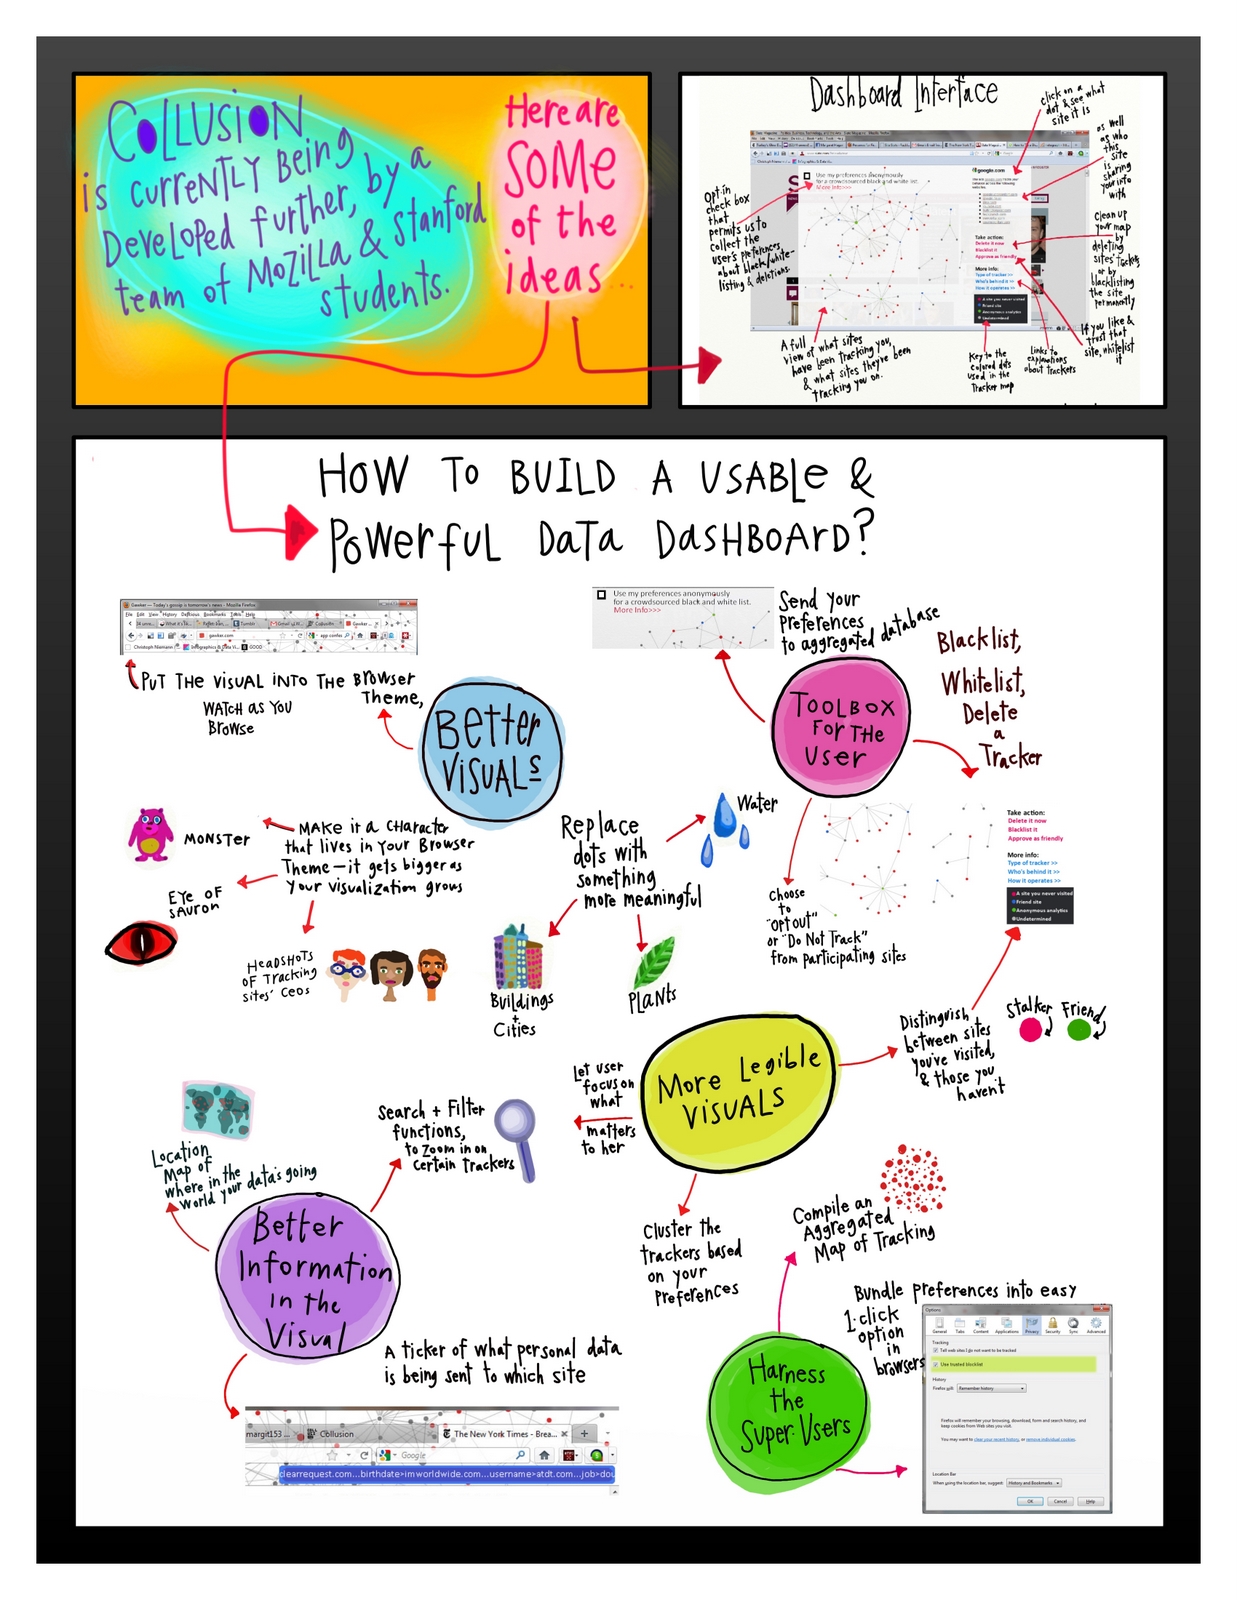 COLLUSION
is currently being
developed further, by a
team of Mozilla & Stanford
students.
Here are
SOME
of the
ideas...
Dashboard Interface
click on a
dot & see what
site it is
as well
as who
this
site
is
sharing
your info
with
Opt-in
check box
that
permits us to
collect the
user's preferences
about black/white-
listing & deletions.
Use my preferences anonymously
for a crowdsourced black and white list.
More Info>>>
google.com
Take action:
Delete it now
Blacklist it
Approve as friendly
More info:
Type of tracker >>
Who's behind it >>
How it operates >>
A site you never visited
Friend site
Anonymous analytics
Undetermined
Clean up
your map
by
deleting
sites' trackers
or by
blacklisting
the site
permanently
If you like &
trust that
site, whitelist
it
A full
view of what sites
have been tracking you,
& what sites they've been
tracking you on.
Key to the
colored dots
used in the
Tracker map
Links to
explanations
about trackers
HOW TO BUILD A USABLE &
POWERFUL DATA DASHBOARD?
Gawker — Today's gossip is tomorrow's news - Mozilla Firefox
File Edit View History Delicious Bookmarks Tools Help
gawker.com
Christoph Niemann Infographics & Data Vi... GOOD
PUT THE VISUAL INTO THE BROWSER
THEME,
WATCH AS YOU
BROWSE
Better
VISUALS
Use my preferences anonymously
for a crowdsourced black and white list.
More Info>>>
Send your
preferences
to aggregated database
TOOLBOX
FOR THE
USER
Blacklist,
Whitelist,
Delete
a
Tracker
MONSTER
MAKE it a CHARACTER
that lives in your Browser
Theme—it gets bigger as
your visualization grows
EYE OF
SAURON
HEADSHOTS
OF TRACKING
sites' CEOs
Replace
dots with
something
more meaningful
Water
Buildings
+
Cities
PLANTS
Choose
to
"opt out"
or "Do Not Track"
from participating sites
Take action:
Delete it now
Blacklist it
Approve as friendly
More info:
Type of tracker >>
Who's behind it >>
How it operates >>
A site you never visited
Friend site
Anonymous analytics
Undetermined
More Legible
VISUALS
Distinguish
between sites
you've visited,
& those you
haven't
Stalker
Friend
Let user
focus on
what
matters
to her
Cluster the
trackers based
on your
preferences
Location
Map of
where in the
world your data's going
Search + Filter
functions,
to zoom in on
certain trackers
Better
Information
in the
Visual
A ticker of what personal data
is being sent to which site
margit153 ... Collusion The New York Times - Brea...
Google
clearrequest.com...birthdate>imworldwide.com...username>atdt.com...job>dou
Compile an
Aggregated
Map of Tracking
Harness
the
Super-Users
Bundle preferences into easy
1-click
option
in
browsers
Options
General Tabs Content Applications Privacy Security Sync Advanced
Tracking
Tell web sites I do not want to be tracked
Use trusted blocklist
History
Firefox will: Remember history
Firefox will remember your browsing, download, form and search history, and
keep cookies from Web sites you visit.
You may want to clear your recent history, or remove individual cookies.
Location Bar
When using the location bar, suggest: History and Bookmarks
OK Cancel Help